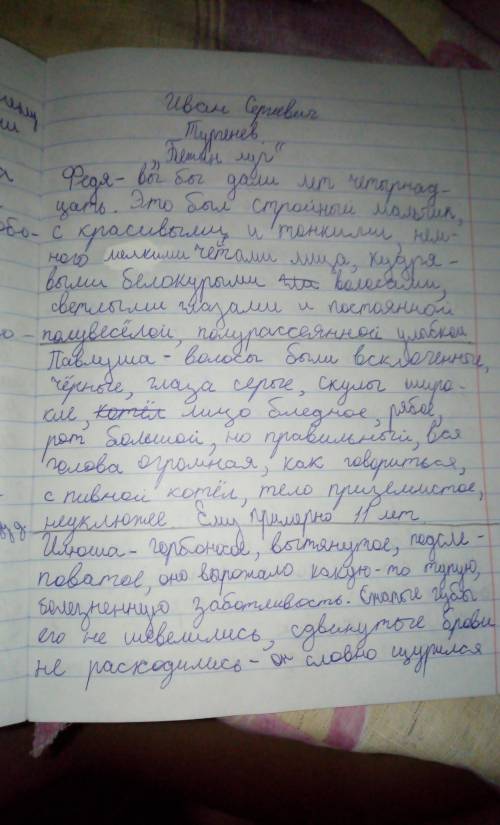 Иван Сергеевич
Тургенев
"Бежин луг"
Федя - вы бы дали лет четырнад-
цать. Это был стройный мальчик,
с красивыми, и тонкими, нем-
ного мелкими чертами лица, кудря-
выми белокурыми волосами,
светлыми глазами и постоянной
полувесёлой, полурассеянной улыбкой
Павлуша - волосы были всклоченные,
чёрные, глаза серые, скулы широ-
кие, котёл лицо бледное, рябое,
рот большой, но правильный, вся
голова огромная, как говориться,
с пивной котёл, тело приземистое,
неуклюжее. Ему примерно 11 лет.
Илюша - горбоносое, вытянутое, подсле-
поватое, оно выражало какую-то тупую,
болезненную заботливость. Сжатые губы
его не шевелились, сдвинутые брови
не расходились - он словно щурился